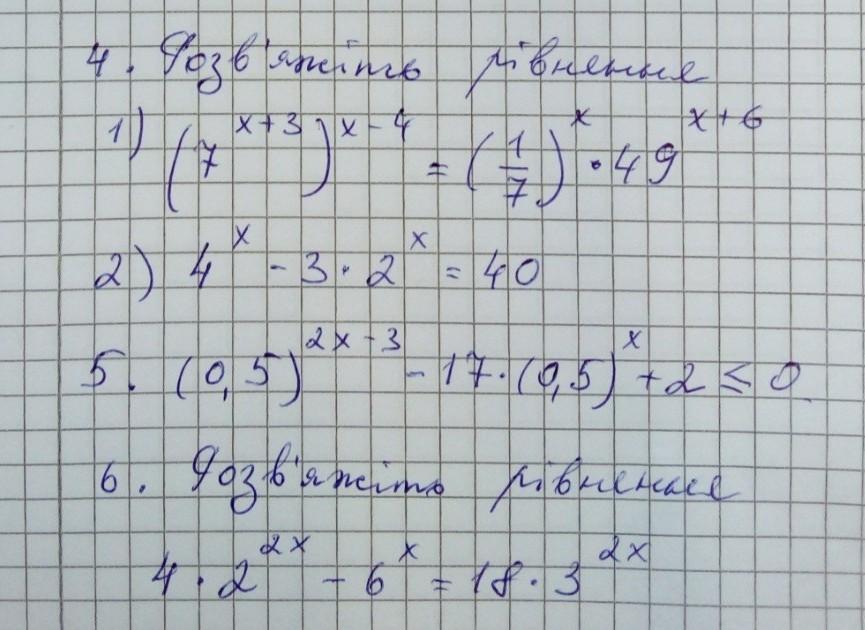 4. Розв'яжіть рівняння
1) (7^(x+3))^(x-4) = (1/7)^x • 49^(x+6)
2) 4^x - 3 · 2^x = 40
5. (0,5)^(2x-3) - 17 · (0,5)^x + 2 ≤ 0
6. Розв'яжіть рівняння
4 · 2^(2x) - 6^x = 18 · 3^(2x)